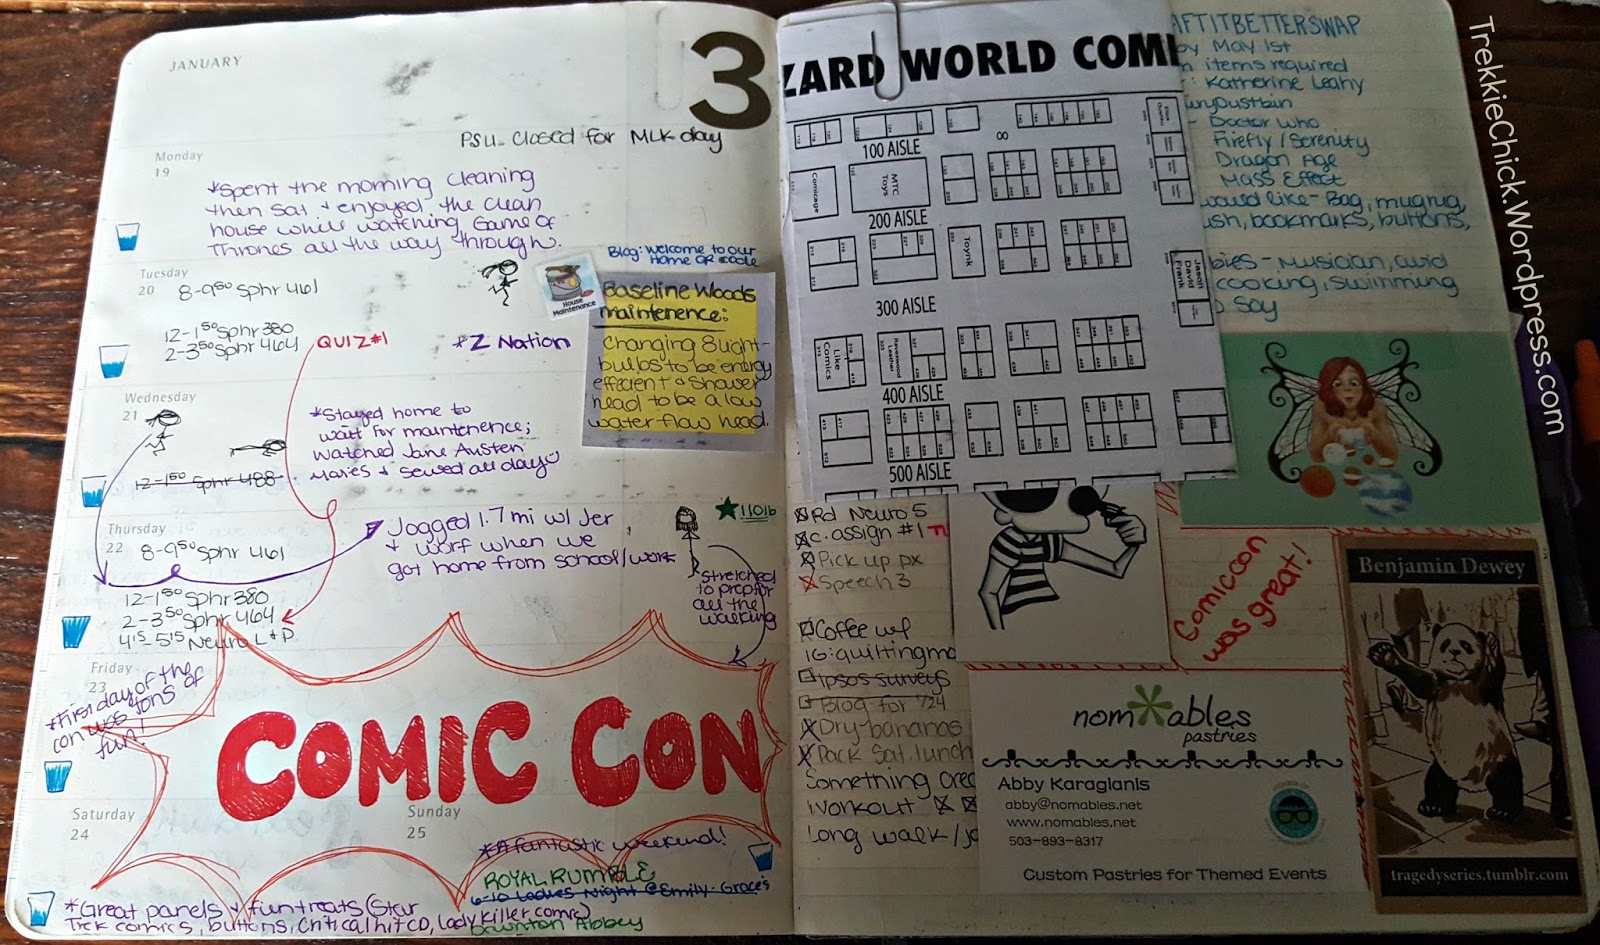 JANUARY
3
PSU Closed for MLK day
Monday
19
*Spent the morning cleaning
then sat + enjoyed the clean
house while watching Game of
Thrones all the way through.
Tuesday
20
8-9:50 Sphr 461
12-1:50 Sphr 380
2-3:50 Sphr 464
QUIZ #1
*Z Nation
House
Maintenance
Blog: Welcome to our
Home QR code
Baseline Woods
maintenence:
Changing 8 light-
bulbs to be energy
effecient + shower
head to be a low
water-flow head.
Wednesday
21
12-1:50 Sphr 488
*Stayed home to
wait for maintenence;
watched Jane Austen
movies + sewed all day
Thursday
22
8-9:50 Sphr 461
12-1:50 Sphr 380
2-3:50 Sphr 464
4:15-5:15 Neuro L+D
Jogged 1.7 mi w/ Jer
+ Worf when we
got home from school/work
1101b
Stretched
to prep for
all the
walking
Friday
23
*First day of the
con was tons of
fun!
COMIC CON
Saturday
24
Sunday
25
*A fantastic weekend!
ROYAL RUMBLE
6-10 Ladies Night @ Emily-Grace's
Downton Abbey
*Great panels + fun treats (Star
Trek comics, buttons, Critical hit CD, lady killer comic)
ZARD WORLD COMI
100 AISLE
Comicage
MTC
Toys
200 AISLE
Toynk
Jason
David
Frank
300 AISLE
Like
Comics
Ravenwood
Leather
400 AISLE
500 AISLE
AFTITBETTERSWAP
by May 1st
items required
: Katherine Leahy
Doctor Who
Firefly / Serenity
Dragon Age
Mass Effect
would like - Bag, mug rug,
ush, bookmarks, buttons,
bies - Musician, avid
cooking, swimming
Say
Rd Neuro 5
c. assign #1
Pick up px
Speech 3
Coffee w/
IG: quiltingmo
Ipsos surveys
Blog for 1/24
Dry bananas
Pack Sat. lunch
Something crea
Workout
Long walk/jo
Comiccon
was great!
nom*ables
pastries
Abby Karagianis
abby@nomables.net
www.nomables.net
503-893-8317
Custom Pastries for Themed Events
Benjamin Dewey
tragedyseries.tumblr.com
TrekkieChick.Wordpress.com